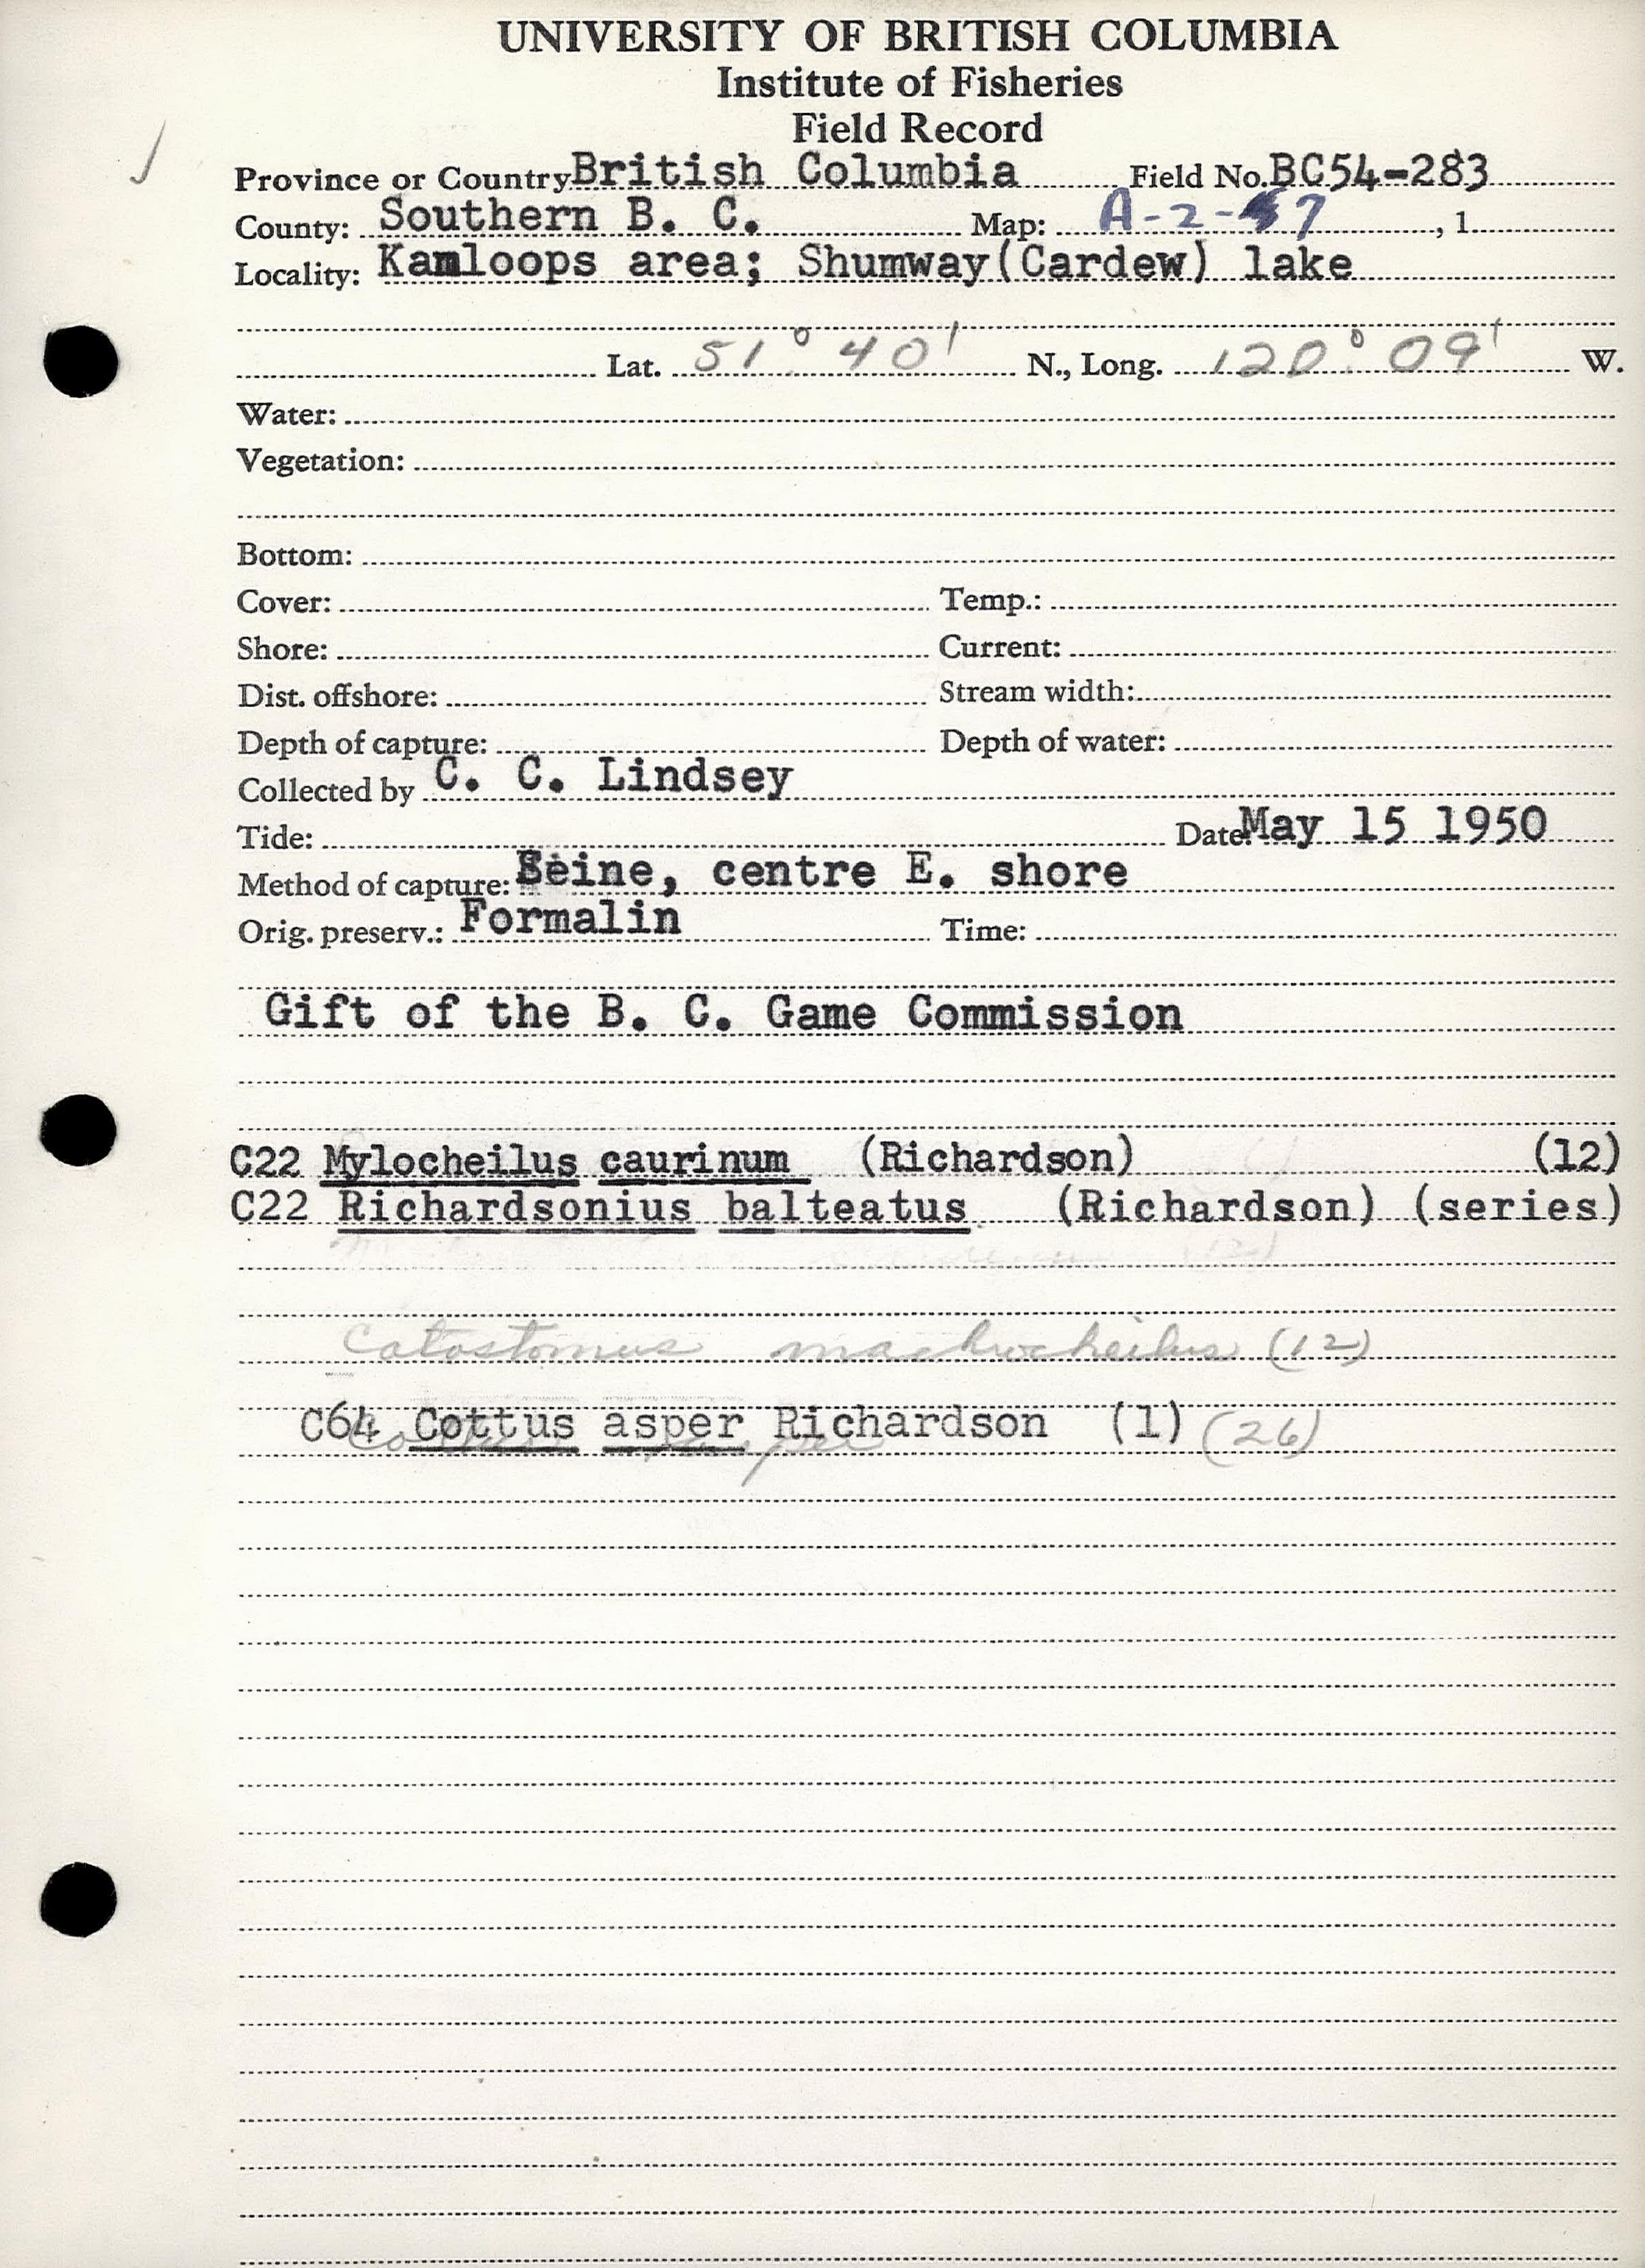 UNIVERSITY OF BRITISH COLUMBIA
Institute of Fisheries
Field Record
Province or Country British Columbia Field No. BC54-283
County: Southern B. C. Map: A-2-7 , 1
Locality: Kamloops area; Shumway(Cardew) lake
Lat. 51° 40' N., Long. 120° 09' W.
Water:
Vegetation:
Bottom:
Cover: Temp.:
Shore: Current:
Dist. offshore: Stream width:
Depth of capture: Depth of water:
Collected by C. C. Lindsey
Tide: Date May 15 1950
Method of capture: Seine, centre E. shore
Orig. preserv.: Formalin Time:
Gift of the B. C. Game Commission
C22 Mylocheilus caurinum (Richardson) (12)
C22 Richardsonius balteatus (Richardson) (series)
Catostomus machrocheilus (12)
C64 Cottus asper Richardson (1) (26)